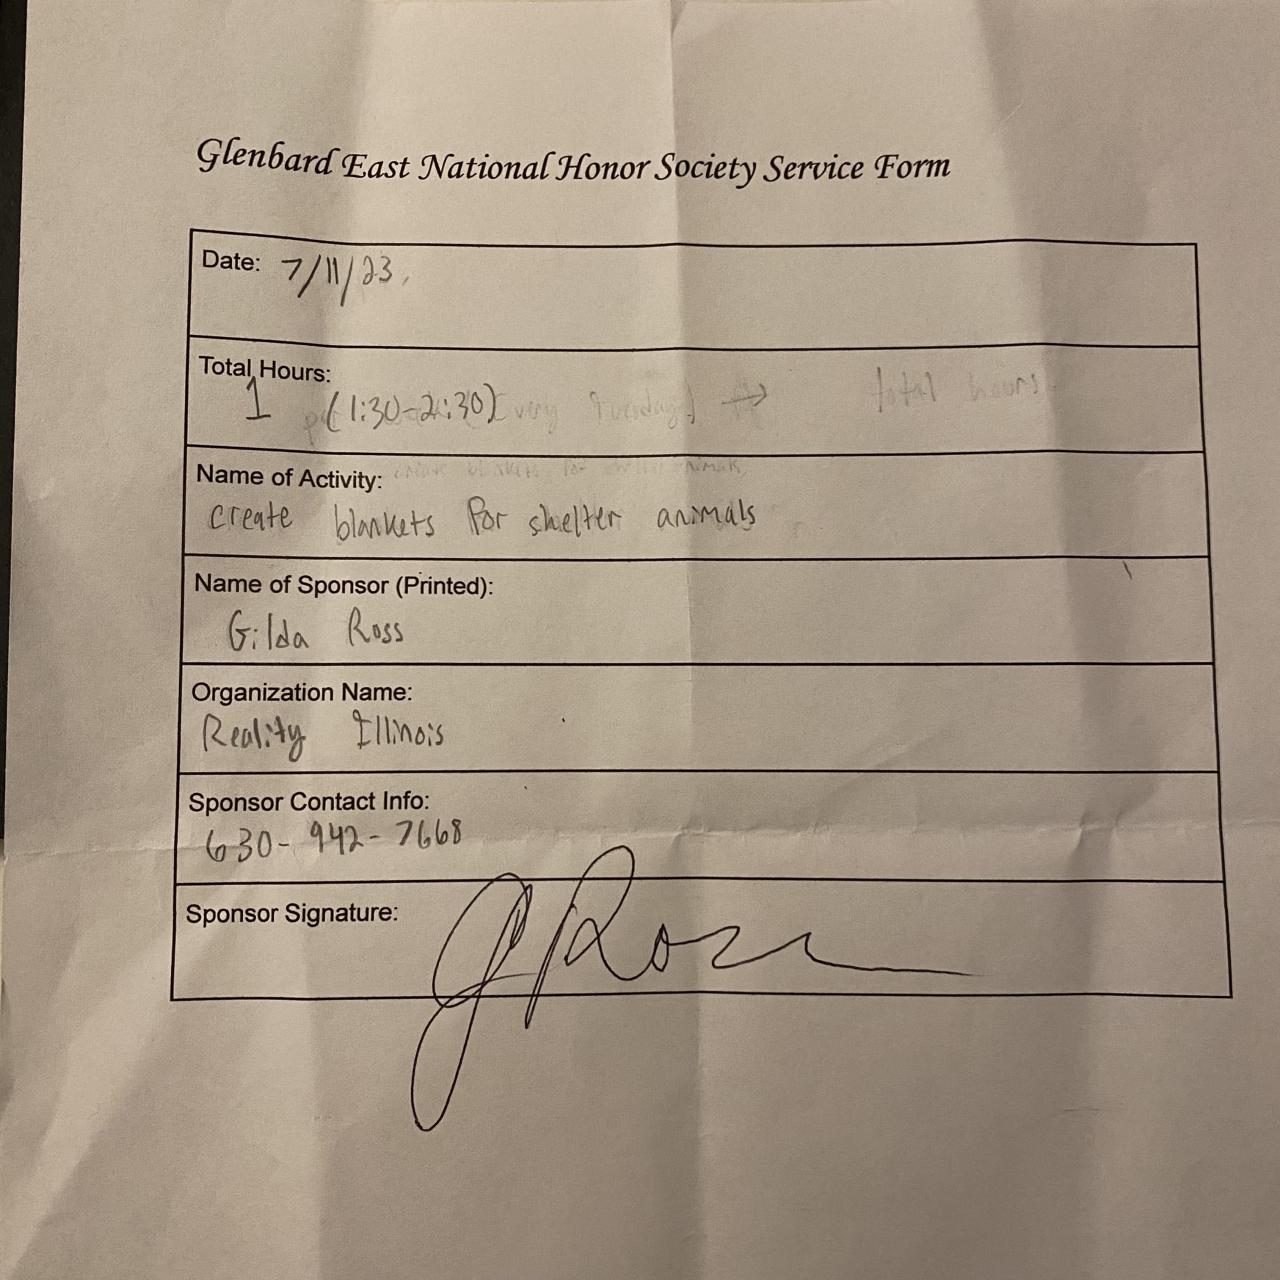 Glenbard East National Honor Society Service Form
Date: 7/11/23
Total Hours:
1 (1:30-2:30) very Tuesday) → total hours
Name of Activity: create blankets for shelter animals
create blankets for shelter animals
Name of Sponsor (Printed):
Gilda Ross
Organization Name:
Reality Illinois
Sponsor Contact Info:
630-942-7668
Sponsor Signature: G Ross